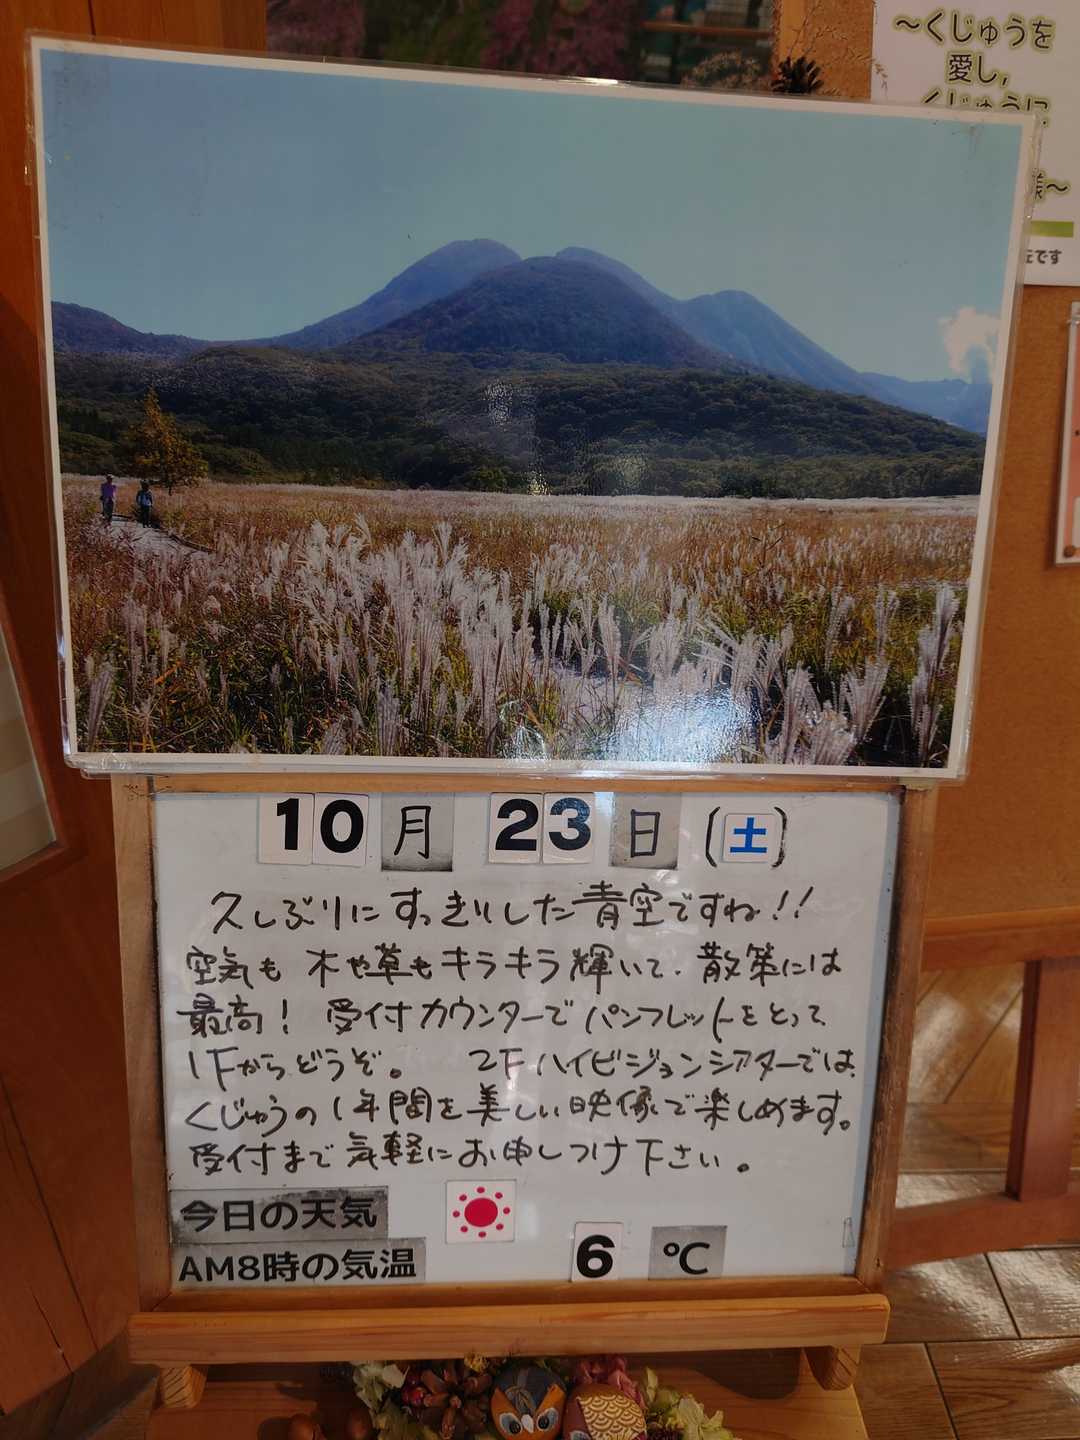 ～くじゅうを
愛し,
くじゅうに
様～
です
10月 23日 (土)
久しぶりにすっきりした青空ですね!!
空気も 木や草もキラキラ輝いて、散策には
最高! 受付カウンターでパンフレットをとって、
1Fからどうぞ。 2Fハイビジョンシアターでは、
くじゅうの1年間を美しい映像で楽しめます。
受付まで気軽にお申しつけ下さい。
今日の天気
AM8時の気温 6 ℃